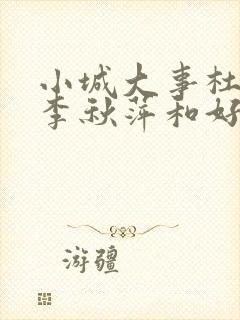 小城大事杜
李秋萍和好
游疆